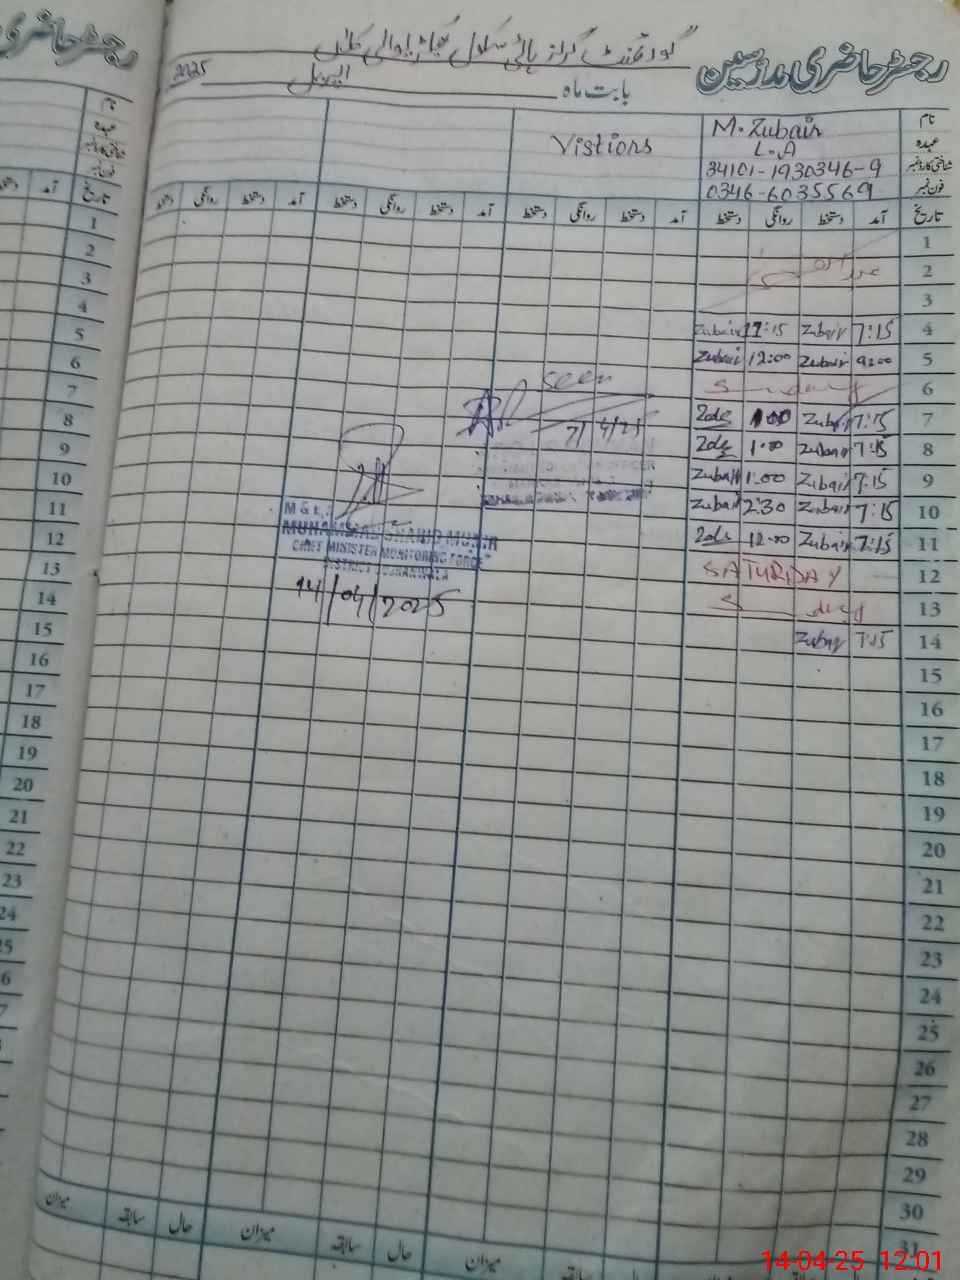 رجسٹر حاضری مدرسین گورنمنٹ گرلز ہائی سکول
بابت ماہ اپریل 2025
نام M. Zubair Vistiors
عہدہ L.A
شناختی کارڈ نمبر 34101-1930346-9
فون نمبر 0346-6035569
تاریخ آمد دستخط روانگی دستخط آمد دستخط روانگی دستخط آمد دستخط روانگی دستخط
1
2
3
4 7:15 Zubair 11:15 Zubair
5 9:00 Zubair 12:00 Zubair
6 Sunday
7 7:15 Zubair 1:00
8 7:15 Zubair 1:00
9 7:15 Zubair 1:00 Zubair
10 7:15 Zubair 2:30 Zubair
11 7:15 Zubair 12:00
12 SATURDAY
13 Sunday
14 7:15 Zubair
15
16
17
18
19
20
21
22
23
24
25
26
27
28
29
30
31
seen
7/4/25
M & E
MUHAMMAD SHAHID MUNIR
CHIEF MINISTER MONITORING FORCE
DISTRICT GUJRANWALA
14/04/2025
میزان حال سابقہ میزان حال سابقہ میزان
رجسٹر حاضری
نام
عہدہ
شناختی کارڈ نمبر
فون نمبر
تاریخ آمد
1
2
3
4
5
6
7
8
9
10
11
12
13
14
15
16
17
18
19
20
21
22
23
24
14-04-25 12:01